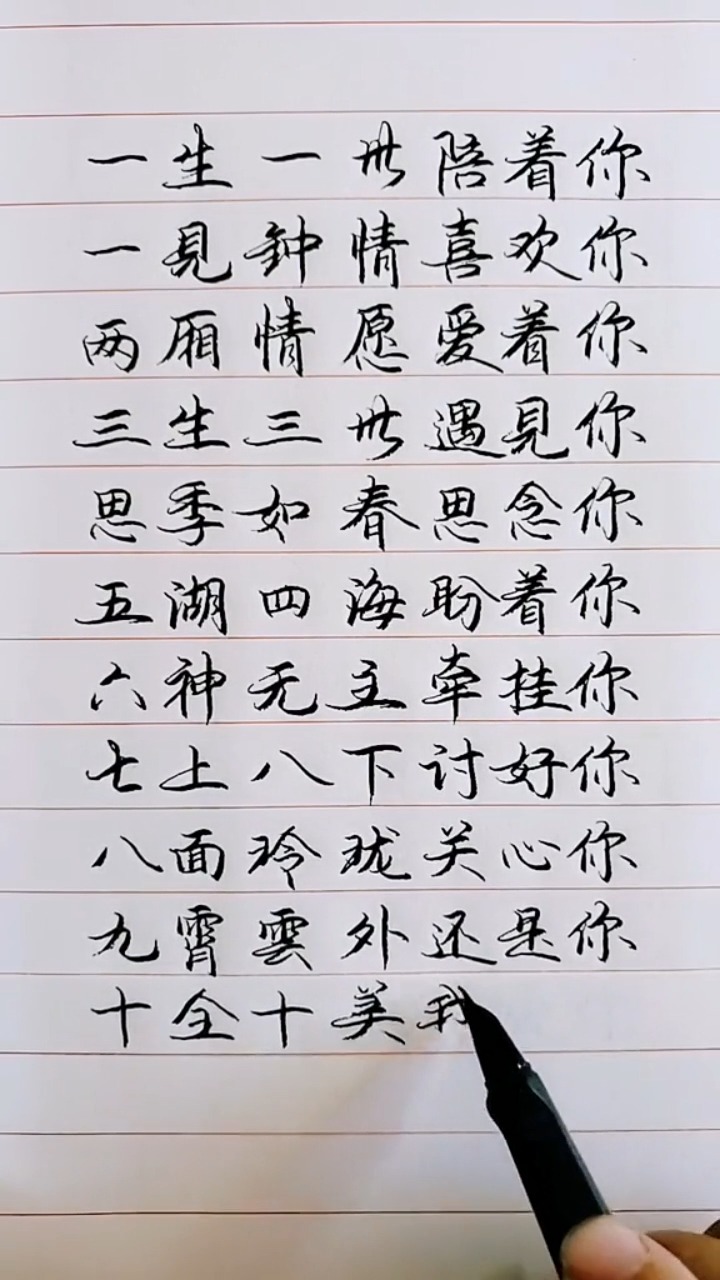 一生一世陪着你
一見鈡情喜欢你
两厢情愿爱着你
三生三世遇見你
思季如春思念你
五湖四海盼着你
六神无主牵挂你
七上八下讨好你
八面玲珑关心你
九霄雲外还是你
十全十美我